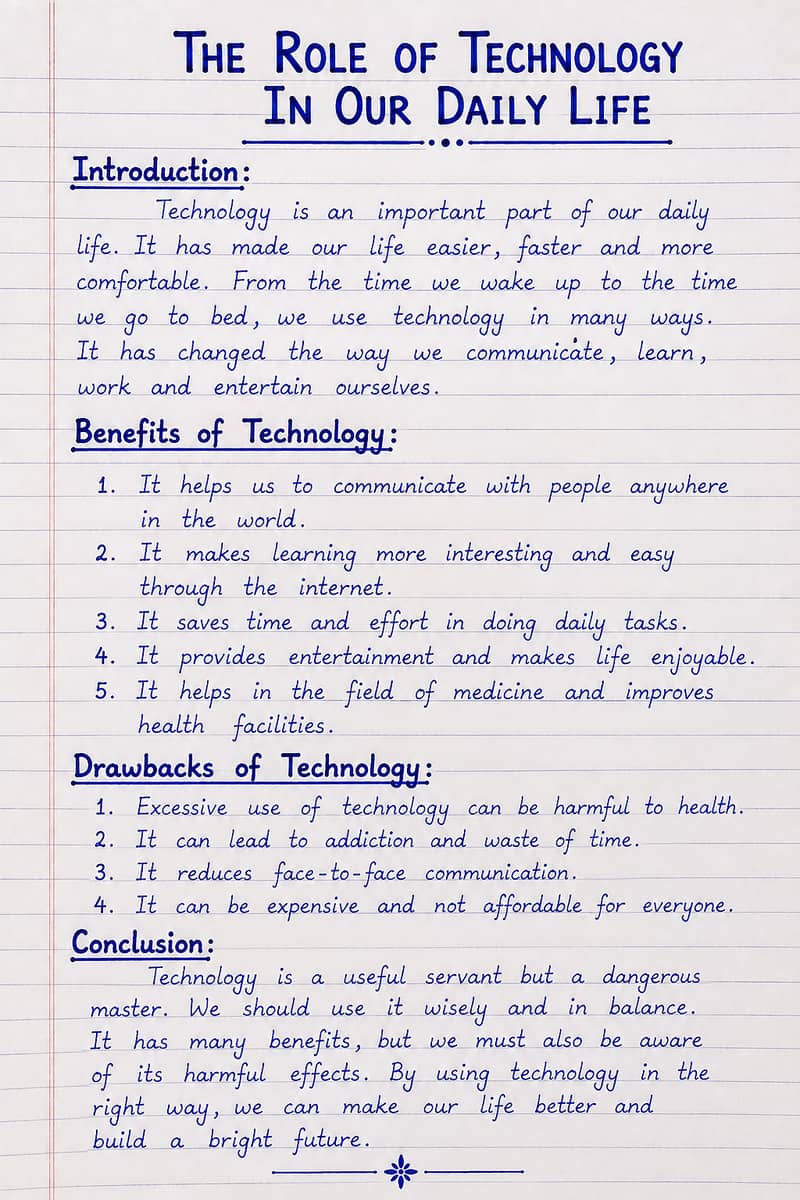 THE ROLE OF TECHNOLOGY
IN OUR DAILY LIFE
Introduction:
Technology is an important part of our daily
life. It has made our life easier, faster and more
comfortable. From the time we wake up to the time
we go to bed, we use technology in many ways.
It has changed the way we communicate, learn,
work and entertain ourselves.
Benefits of Technology:
1. It helps us to communicate with people anywhere
in the world.
2. It makes learning more interesting and easy
through the internet.
3. It saves time and effort in doing daily tasks.
4. It provides entertainment and makes life enjoyable.
5. It helps in the field of medicine and improves
health facilities.
Drawbacks of Technology:
1. Excessive use of technology can be harmful to health.
2. It can lead to addiction and waste of time.
3. It reduces face-to-face communication.
4. It can be expensive and not affordable for everyone.
Conclusion:
Technology is a useful servant but a dangerous
master. We should use it wisely and in balance.
It has many benefits, but we must also be aware
of its harmful effects. By using technology in the
right way, we can make our life better and
build a bright future.